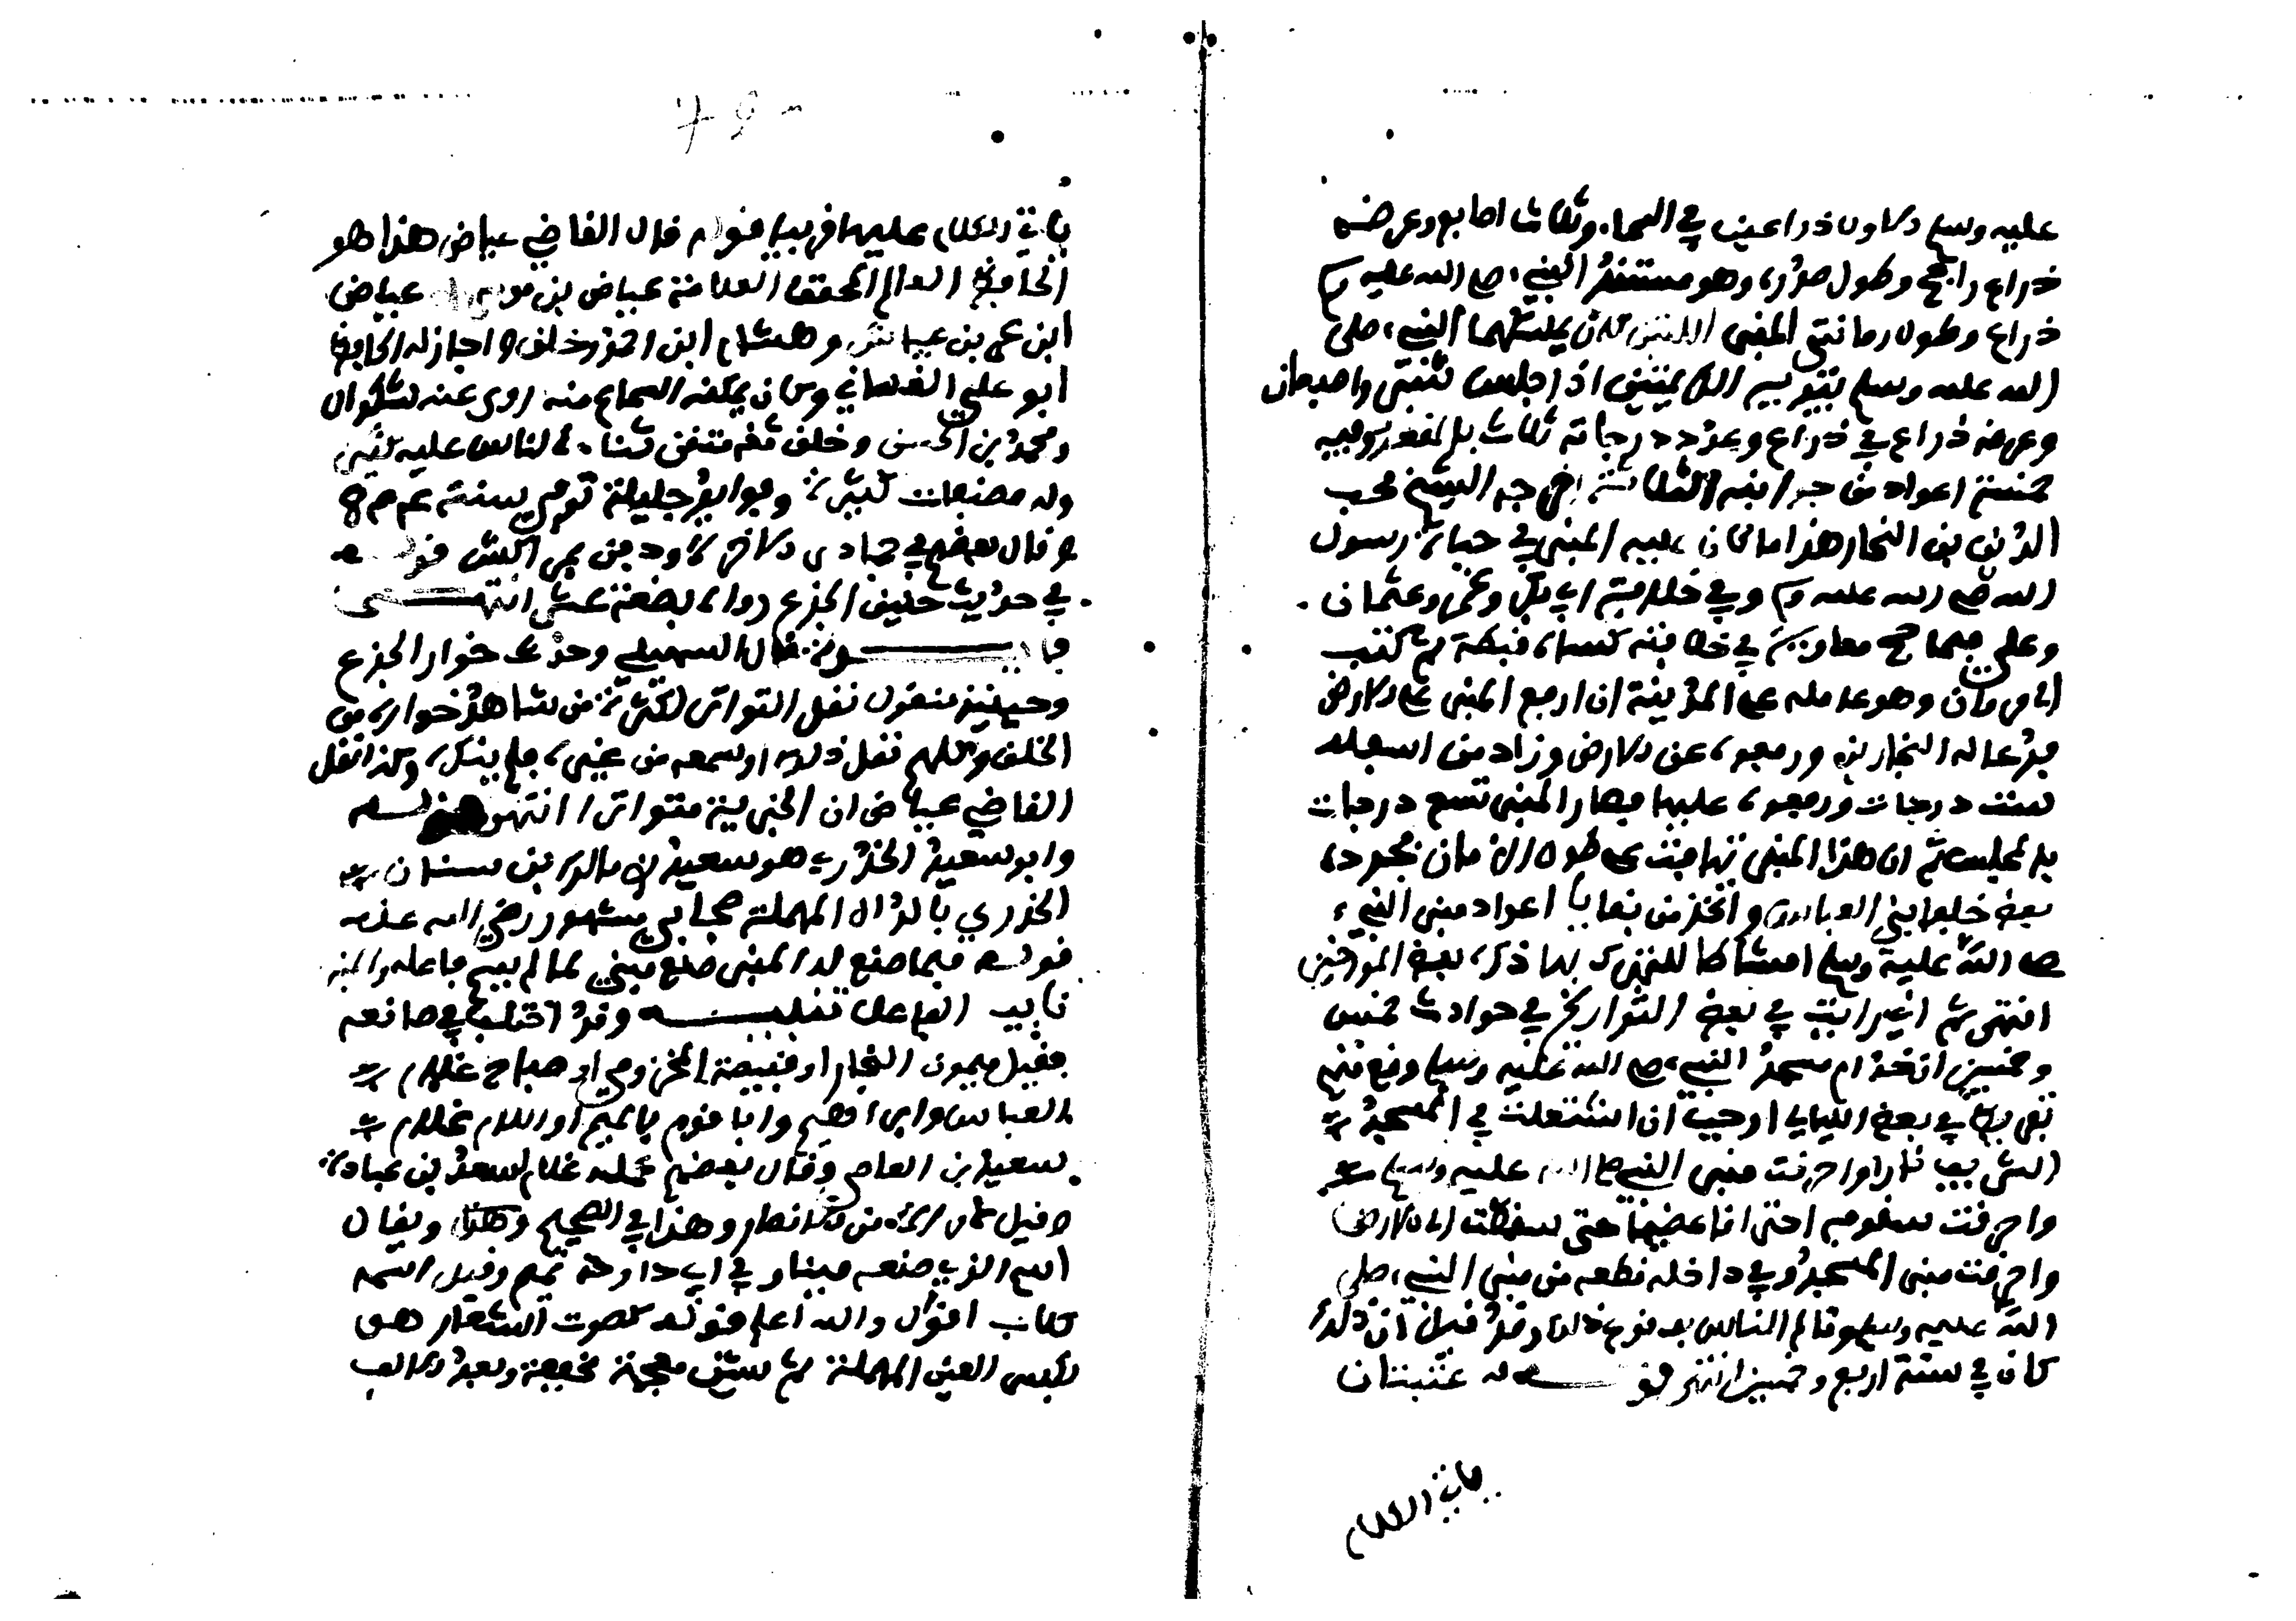 عليه وسلم الاول ذراعين في السماء وثلاث اصابع وعرضه
ذراع راجح وطول صدره وهو مستند النبي صلى الله عليه وسلم
ذراع وطول رمانتي المنبر اللتين كان يمسكهما النبي صلى
الله عليه وسلم بيديه الكريمتين اذا جلس شبر واصبعان
وعرضه ذراع في ذراع وعدد درجاته ثلاث بالمقعد وفيه
خمسة اعواد من جوانبه الثلاثة اخرجه الشيخ محب
الدين بن النجار هذا ما كان عليه المنبر في حياة رسول
الله صلى الله عليه وسلم وفي خلافة ابي بكر وعمر وعثمان
وعلي فلما حج معاوية في خلافته كساه قبطية ثم كتب
الى مروان وهو عامله على المدينة ان ارفع المنبر على الارض
فدعا له النجارين ورفعوه عن الارض وزاد من اسفله
ست درجات ورفعوه عليها فصار المنبر تسع درجات
بالمجلس ثم ان هذا المنبر تهافت على طول الزمان فجدده
بعض خلفا بني العباس واتخذ من بقايا اعواد منبر النبي
صلى الله عليه وسلم امشاطا للتبرك بها ذكره بعض المورخين
انتهى ثم اني رايت في بعض التواريخ في حوادث خمس
وخمسين ان خدام مسجد النبي صلى الله عليه وسلم وقع منهم
تفريط في بعض الليالي اوجب ان اشتعلت في المسجد
الشريف نارا واحرقت منبر النبي صلى الله عليه وسلم
واحرقت سقوفه احتراقا عظيما حتى سقطت الى الارض
واحرقت منبر المسجد وفي داخله قطعه من منبر النبي صلى
الله عليه وسلم وتالم الناس بعد فوات ذلك وقد قيل ان ذلك
كان في سنة اربع وخمسين انتهى قوله عتبتان
ياتي الكلام
ياتي الكلام عليها قريبا قوله قال القاضي عياض هذا هو
الحافظ العالم المحقق العلامة عياض بن موسى بن عياض
ابن عمر بن عياض وهشام ابن احمد وخلق واجاز له الحافظ
ابو علي الغساني وكان يمكنه السماع منه روى عنه بشكوال
ومحمد بن الحسن وخلق ثقه متقن ثناء الناس عليه كثير
وله مصنفات كثيرة وفوايد جليلة توفي سنة
وقال بعضهم في جمادى الاخر قوله
في حديث حنين الجذع رواه بضعة عشر انتهى
فايدة قال السهيلي وحديث خوار الجذع
وحينيذ منقول نقل التواتر لكثرة من شاهد خواره من
الخلق وكلهم نقل ذلك او سمعه من غيره فلم ينكره وكذا نقل
القاضي عياض ان الخبر به متواتر انتهى قوله
وابو سعيد الخدري هو سعيد بن مالك بن سنان
الخدري بالدال المهملة صحابي مشهور رضي الله عنه
قوله فيما صنع له المنبر صنع مبني لما لم يسم فاعله والمنبر
نايب الفاعل تنبيه وقد اختلف في صانعه
فقيل ميمون النجار او قبيصة المخزومي او صباح غلام
العباس وابراهيم وابا قوم بالميم او اللام غلام
سعيد بن العاص وقال بعضهم عمله غلام لسعد بن عبادة
وقيل غلام امراة من الانصار وهذا في الصحيح وهذا ويقال
اسم الذي صنعه مينا وفي ابي داود تميم وقيل اسمه
كلاب اقول والله اعلم قوله كصوت العشار هو
بكسر العين المهملة ثم شين معجمة مخففة وبعد الالف